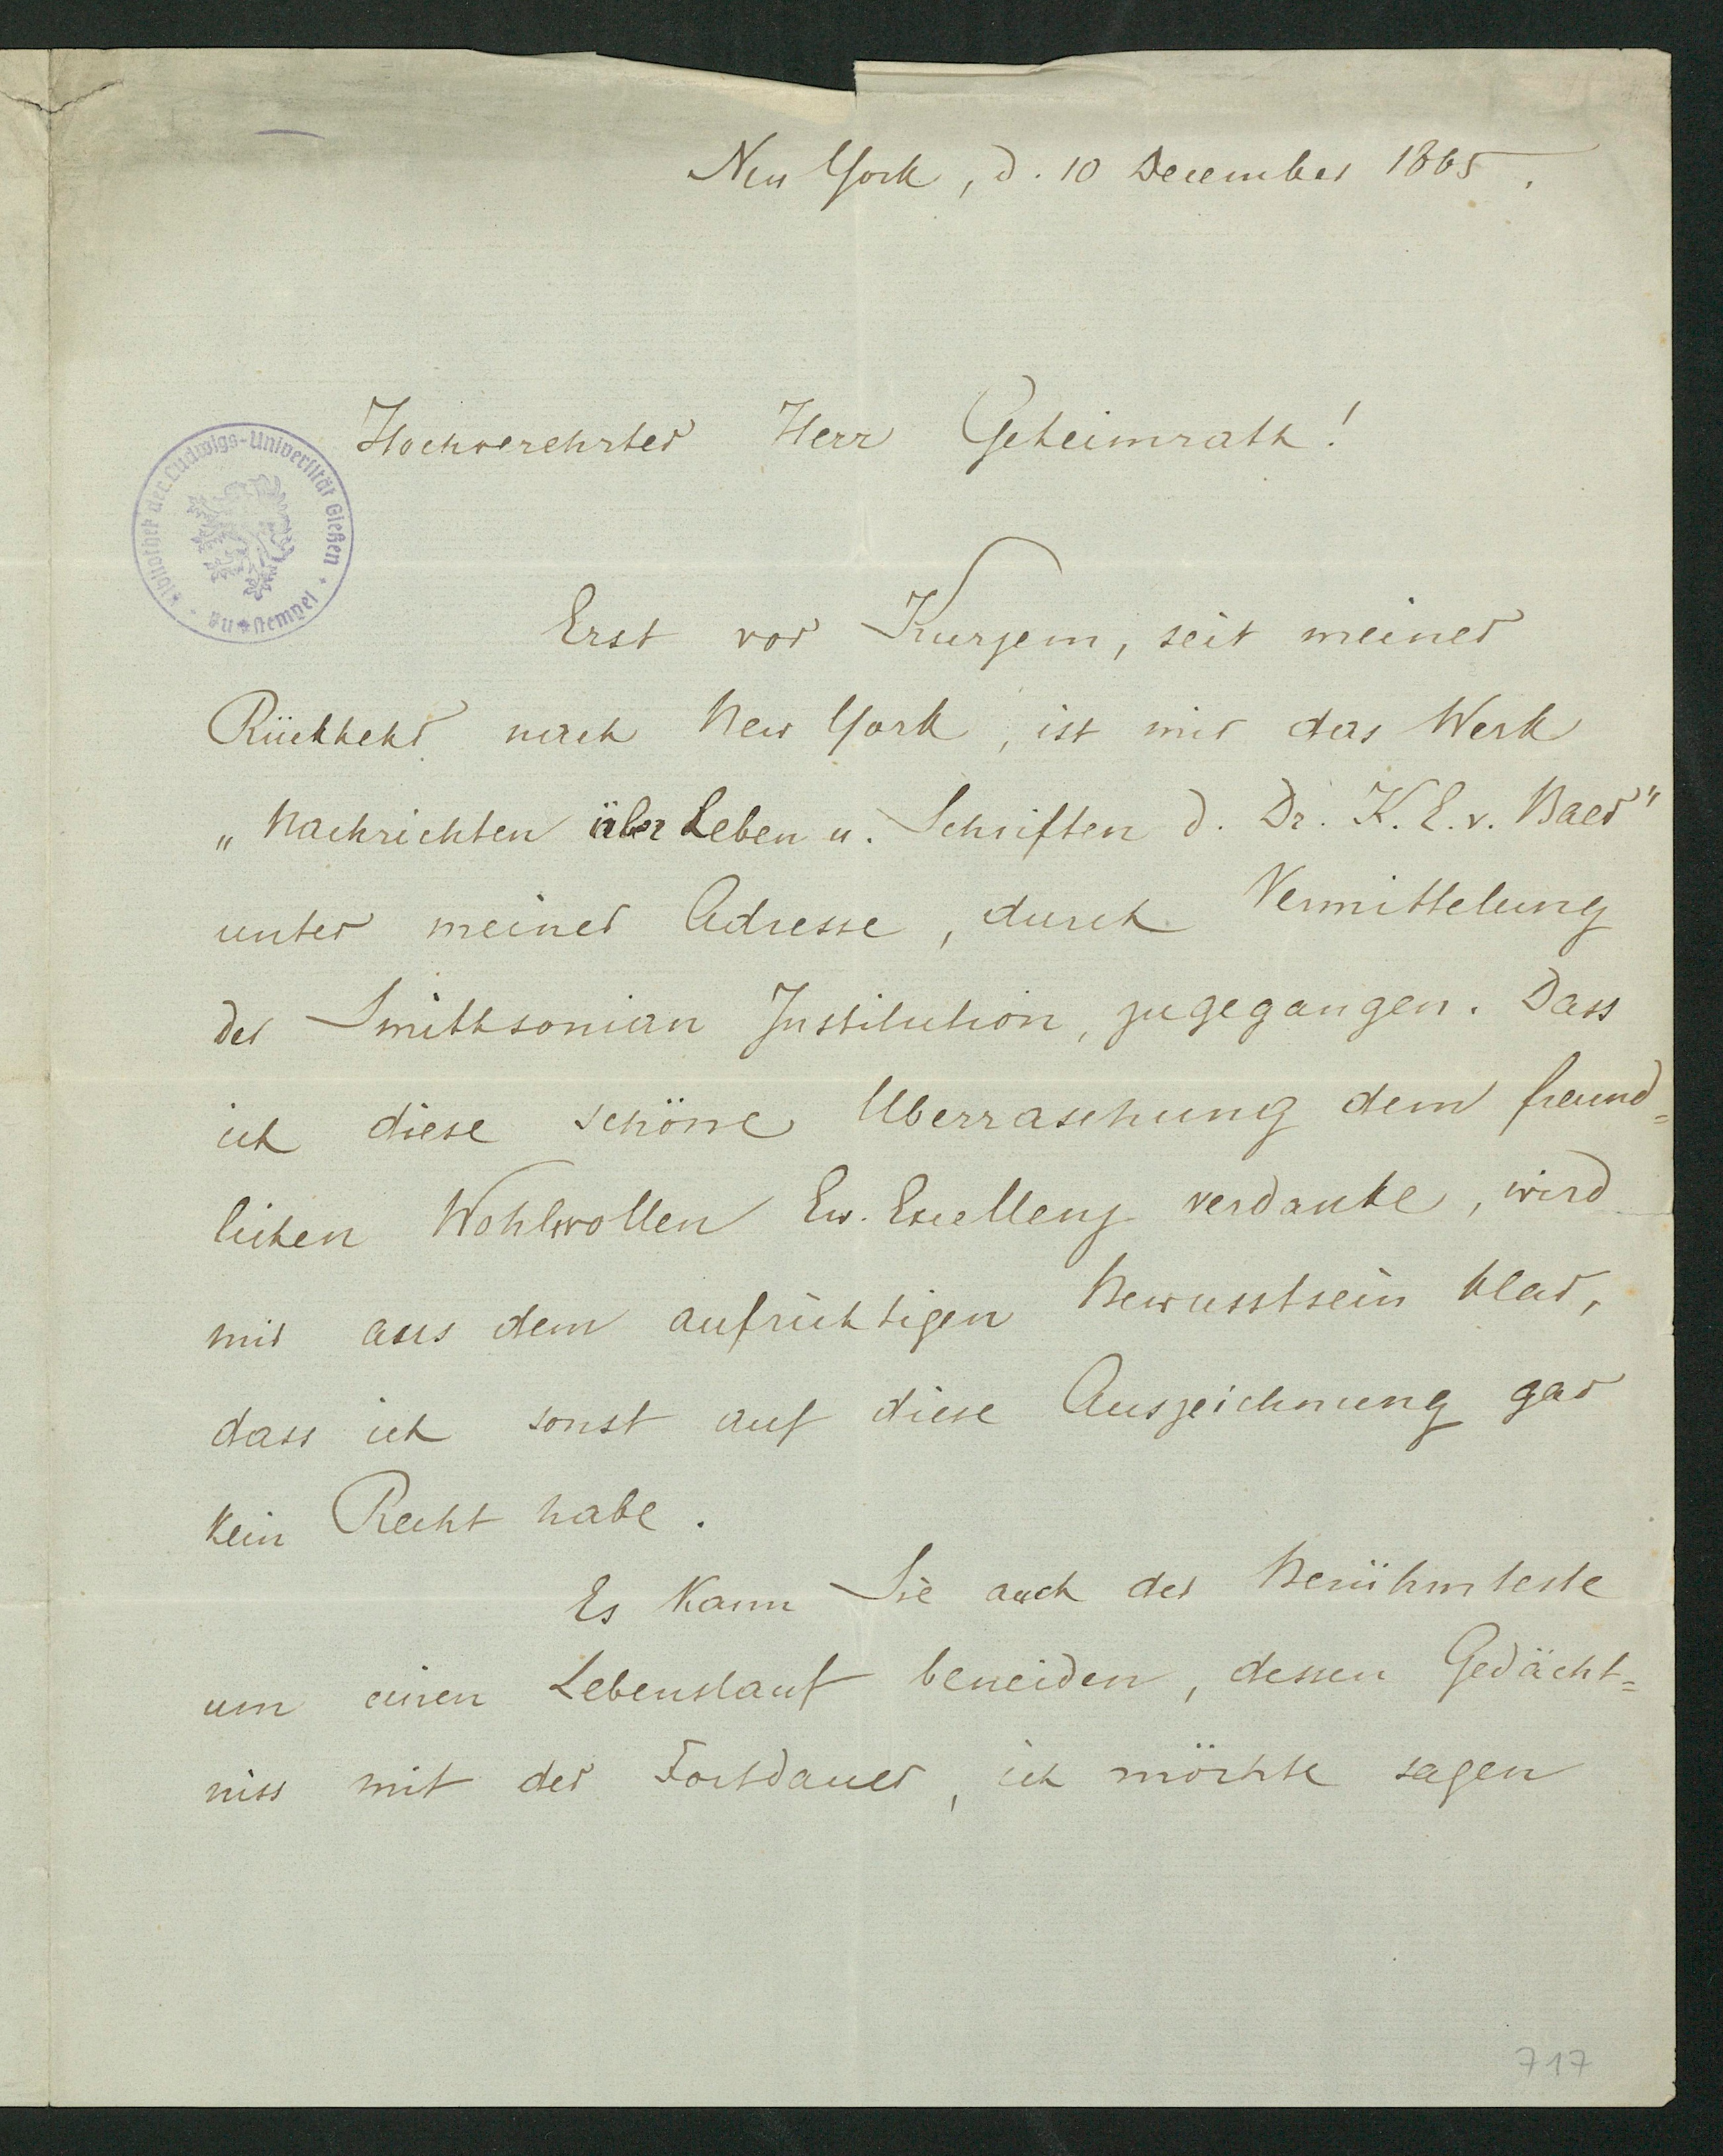 New York, d. 10 December 1865.
Hochverehrter Herr Geheimrath!
Bibliothek der Ludwigs-Universität Gießen
Erst vor Kurzem, seit meiner
Rückkehr nach New York, ist mir das Werk
„Nachrichten über Leben u. Schriften d. Dr. K. E. v. Baer"
unter meiner Adresse, durch Vermittelung
der Smithsonian Institution, zugegangen. Dass
ich diese schöne Überraschung dem freund=
lichen Wohlwollen Ew. Excellenz verdanke, wird
mir aus dem aufrichtigen Bewusstsein klar,
dass ich sonst auf diese Auszeichnung gar
kein Recht habe.
Es kann Sie auch der Berühmteste
um einen Lebenslauf beneiden, dessen Gedächt=
niss mit der Fortdauer, ich möchte sagen
717